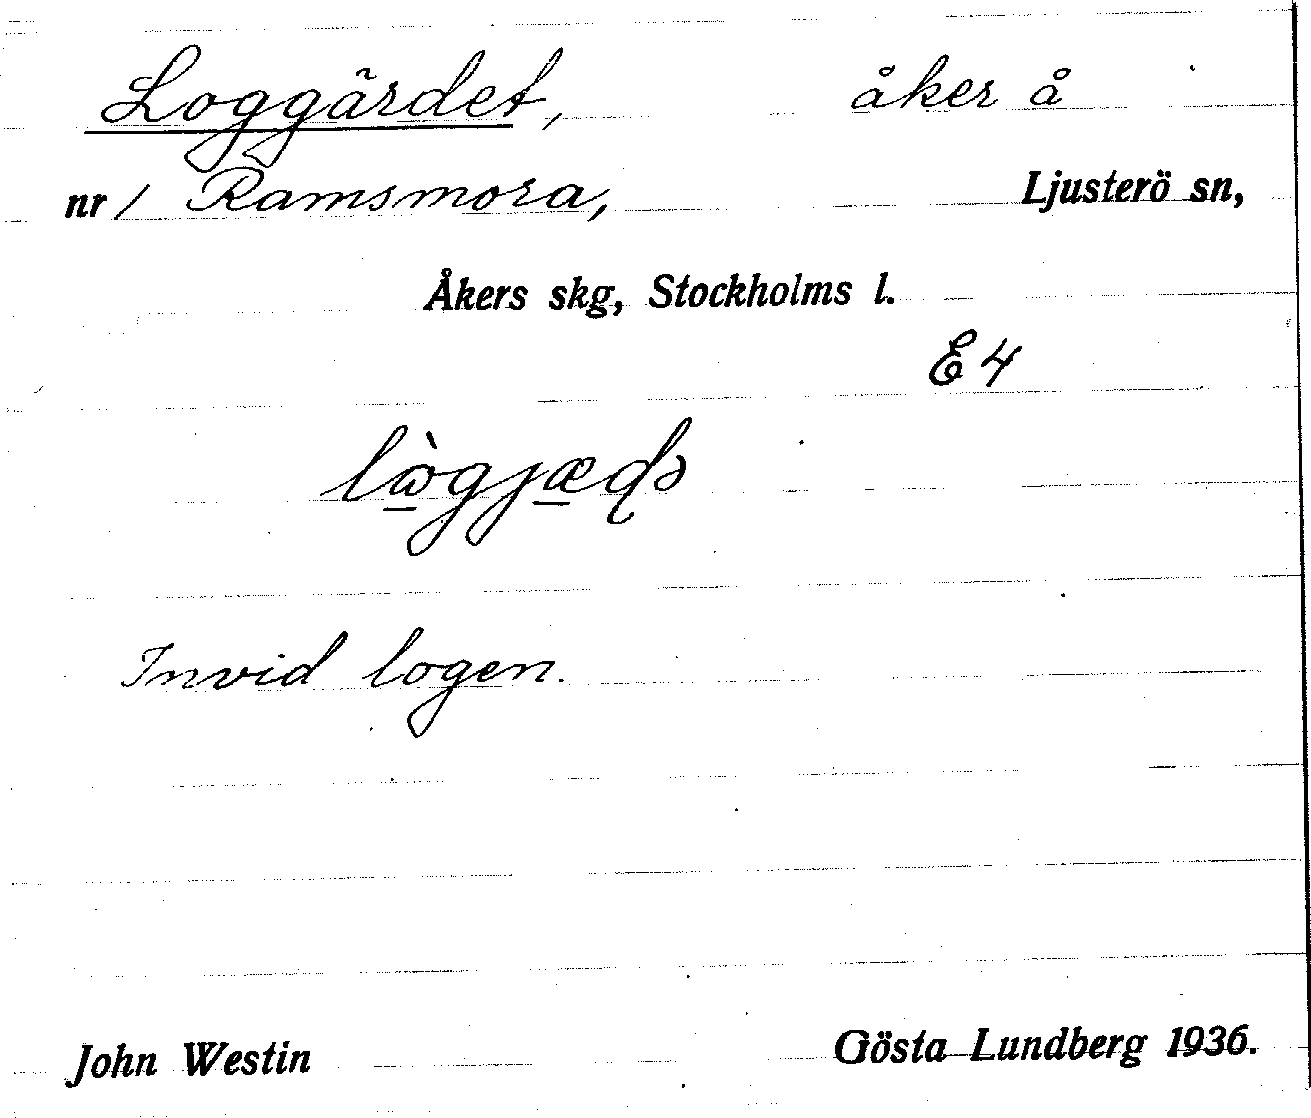 Loggärdet, åker å
nr 1 Ramsmora, Ljusterö sn,
Åkers skg, Stockholms l.
E4
Invid logen.
John Westin Gösta Lundberg 1936.